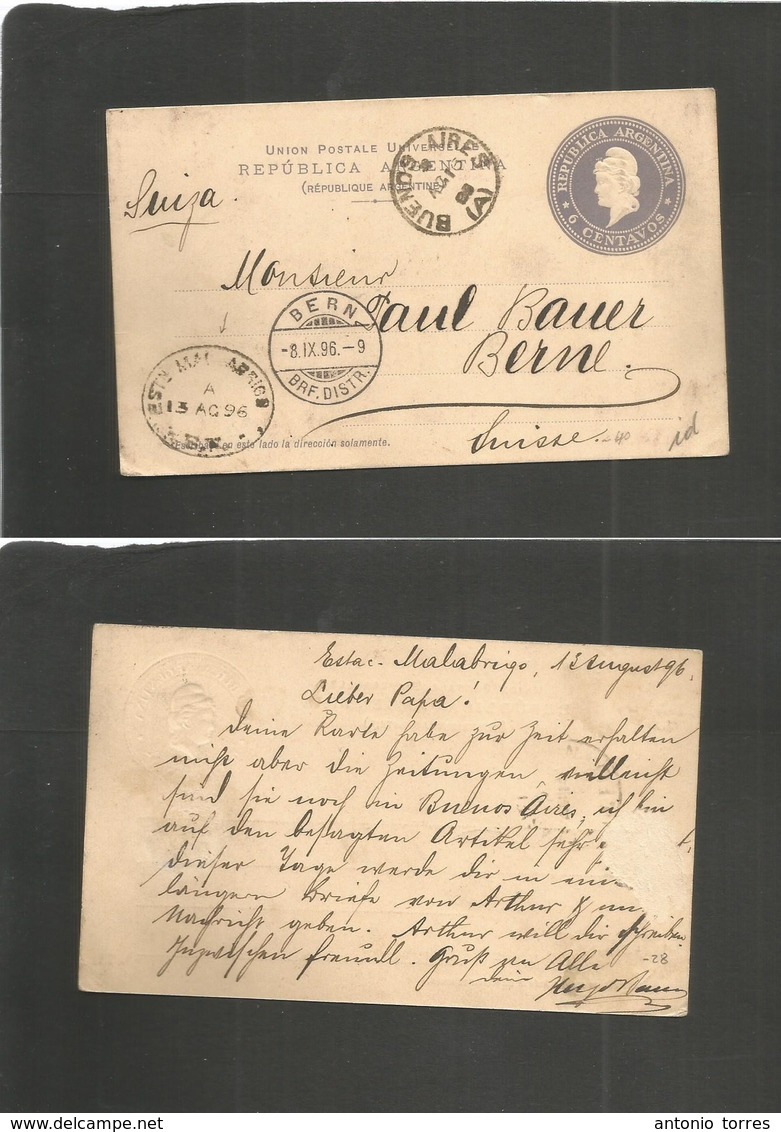 UNION POSTALE UNIVERSELLE
REPÚBLICA ARGENTINA
(RÉPUBLIQUE ARGENTINE)
BUENOS AIRES
(A)
REPUBLICA ARGENTINA
6 CENTAVOS
Suiza.
Monsieur
Paul Bauer
Berne.
Suisse.
BERN
-8.IX.96.-9
BRF. DISTR.
A
13 AG 96
en este lado la dirección solamente.
-40
id
Estac. Malabrigo, 13 August 96.
Lieber Papa!
Deine Karte habe zur Zeit erhalten
nicht aber die Zeitungen, vielleicht
sind sie noch in Buenos Aires, ich bin
auf den besagten Artikel sehr
dieser Tage werde dir in
längern Briefe von Arthur &
Nachricht geben. Arthur will dir schreiben
Inzwischen freundl. Gruß an Alle
-28
dein Hugo Bauer
antonio torres